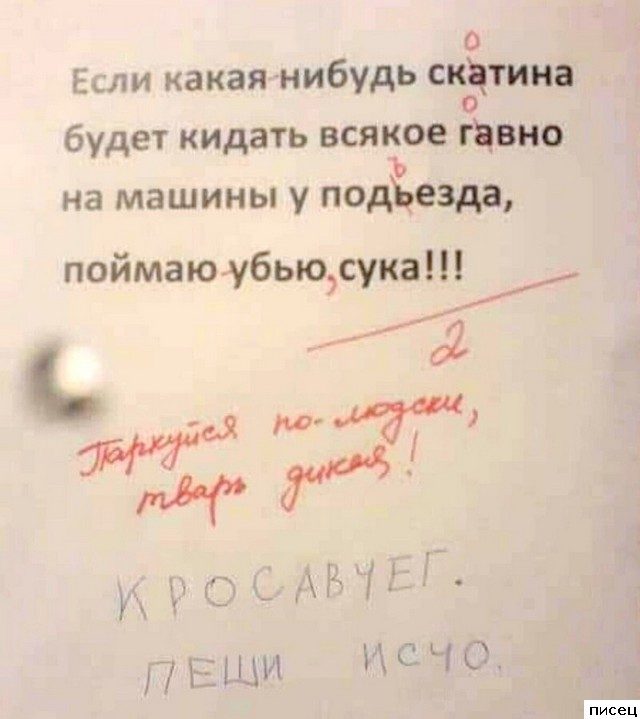 Если какая-нибудь скатина
о
будет кидать всякое гавно
о
на машины у подьезда,
ъ
поймаю-убью, сука!!!
2
Паркуйся по-людски,
тварь дикая!
КРОСАВЧЕГ.
ПЕШИ ИСЧО.
писец